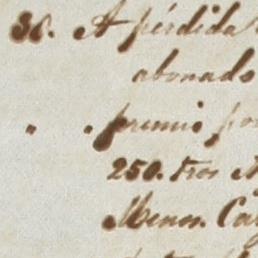 30. A pérdida
abonado
" . premio por
250. tros
Menos. Ca